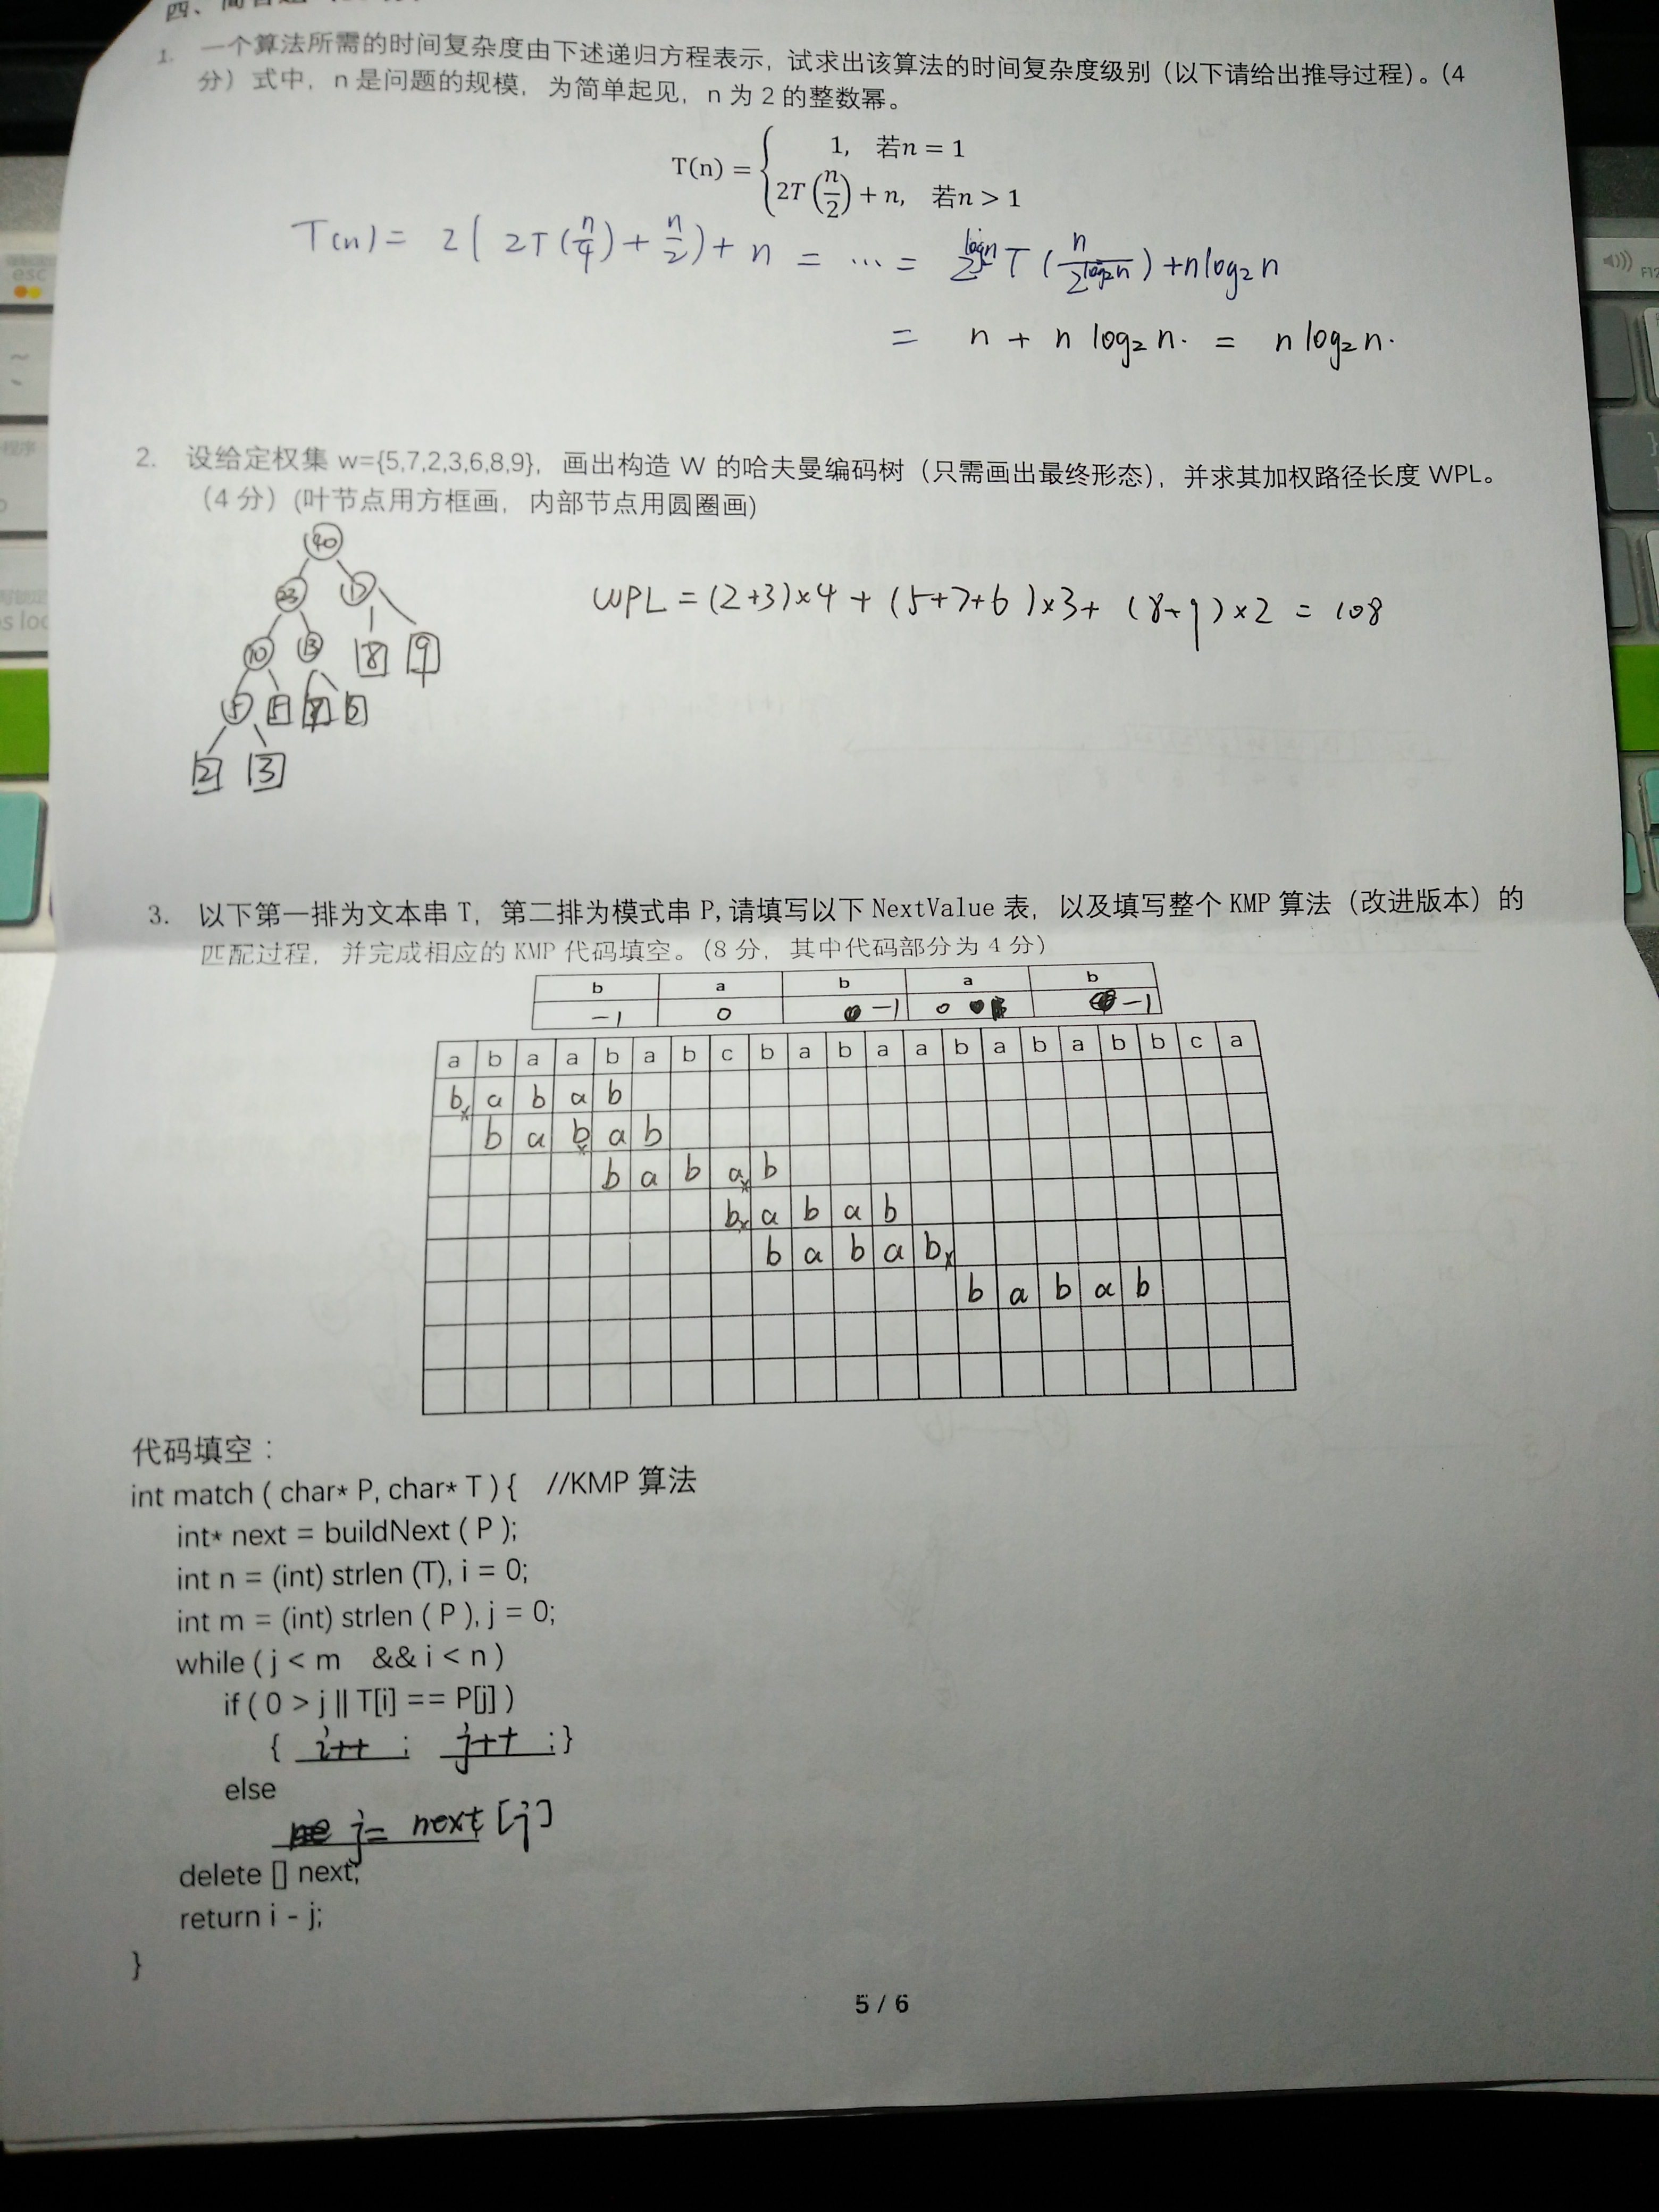 四、
1. 一个算法所需的时间复杂度由下述递归方程表示，试求出该算法的时间复杂度级别（以下请给出推导过程）。(4
分）式中，n 是问题的规模，为简单起见，n 为 2 的整数幂。
T(n) = { 1, 若n = 1
2T(n/2) + n, 若n > 1
T(n) = 2( 2T(n/4) + n/2) + n = … = 2^log₂n T(n/2^log₂n) + nlog₂n
= n + n log₂ n. = n log₂ n.
2. 设给定权集 w={5,7,2,3,6,8,9}，画出构造 W 的哈夫曼编码树（只需画出最终形态），并求其加权路径长度 WPL。
（4 分）(叶节点用方框画，内部节点用圆圈画)
40
23 17
10 13 8 9
5 5
2 3
WPL = (2+3)×4 + (5+7+6)×3+ (8+9)×2 = 108
3. 以下第一排为文本串 T，第二排为模式串 P,请填写以下 NextValue 表，以及填写整个 KMP 算法（改进版本）的
匹配过程，并完成相应的 KMP 代码填空。(8 分，其中代码部分为 4 分)
b a b a b
-1 0 -1 0 -1
a b a a b a b c b a b a a b a b a b b c a
b× a b a b
b a b× a b
b a b a× b
b× a b a b
b a b a b×
b a b a b
代码填空：
int match ( char* P, char* T ) { //KMP 算法
int* next = buildNext ( P );
int n = (int) strlen (T), i = 0;
int m = (int) strlen ( P ), j = 0;
while ( j < m && i < n )
if ( 0 > j || T[i] == P[j] )
{ i++ ; j++ ; }
else
j = next [j]
delete [] next;
return i - j;
}
5 / 6
esc
F12